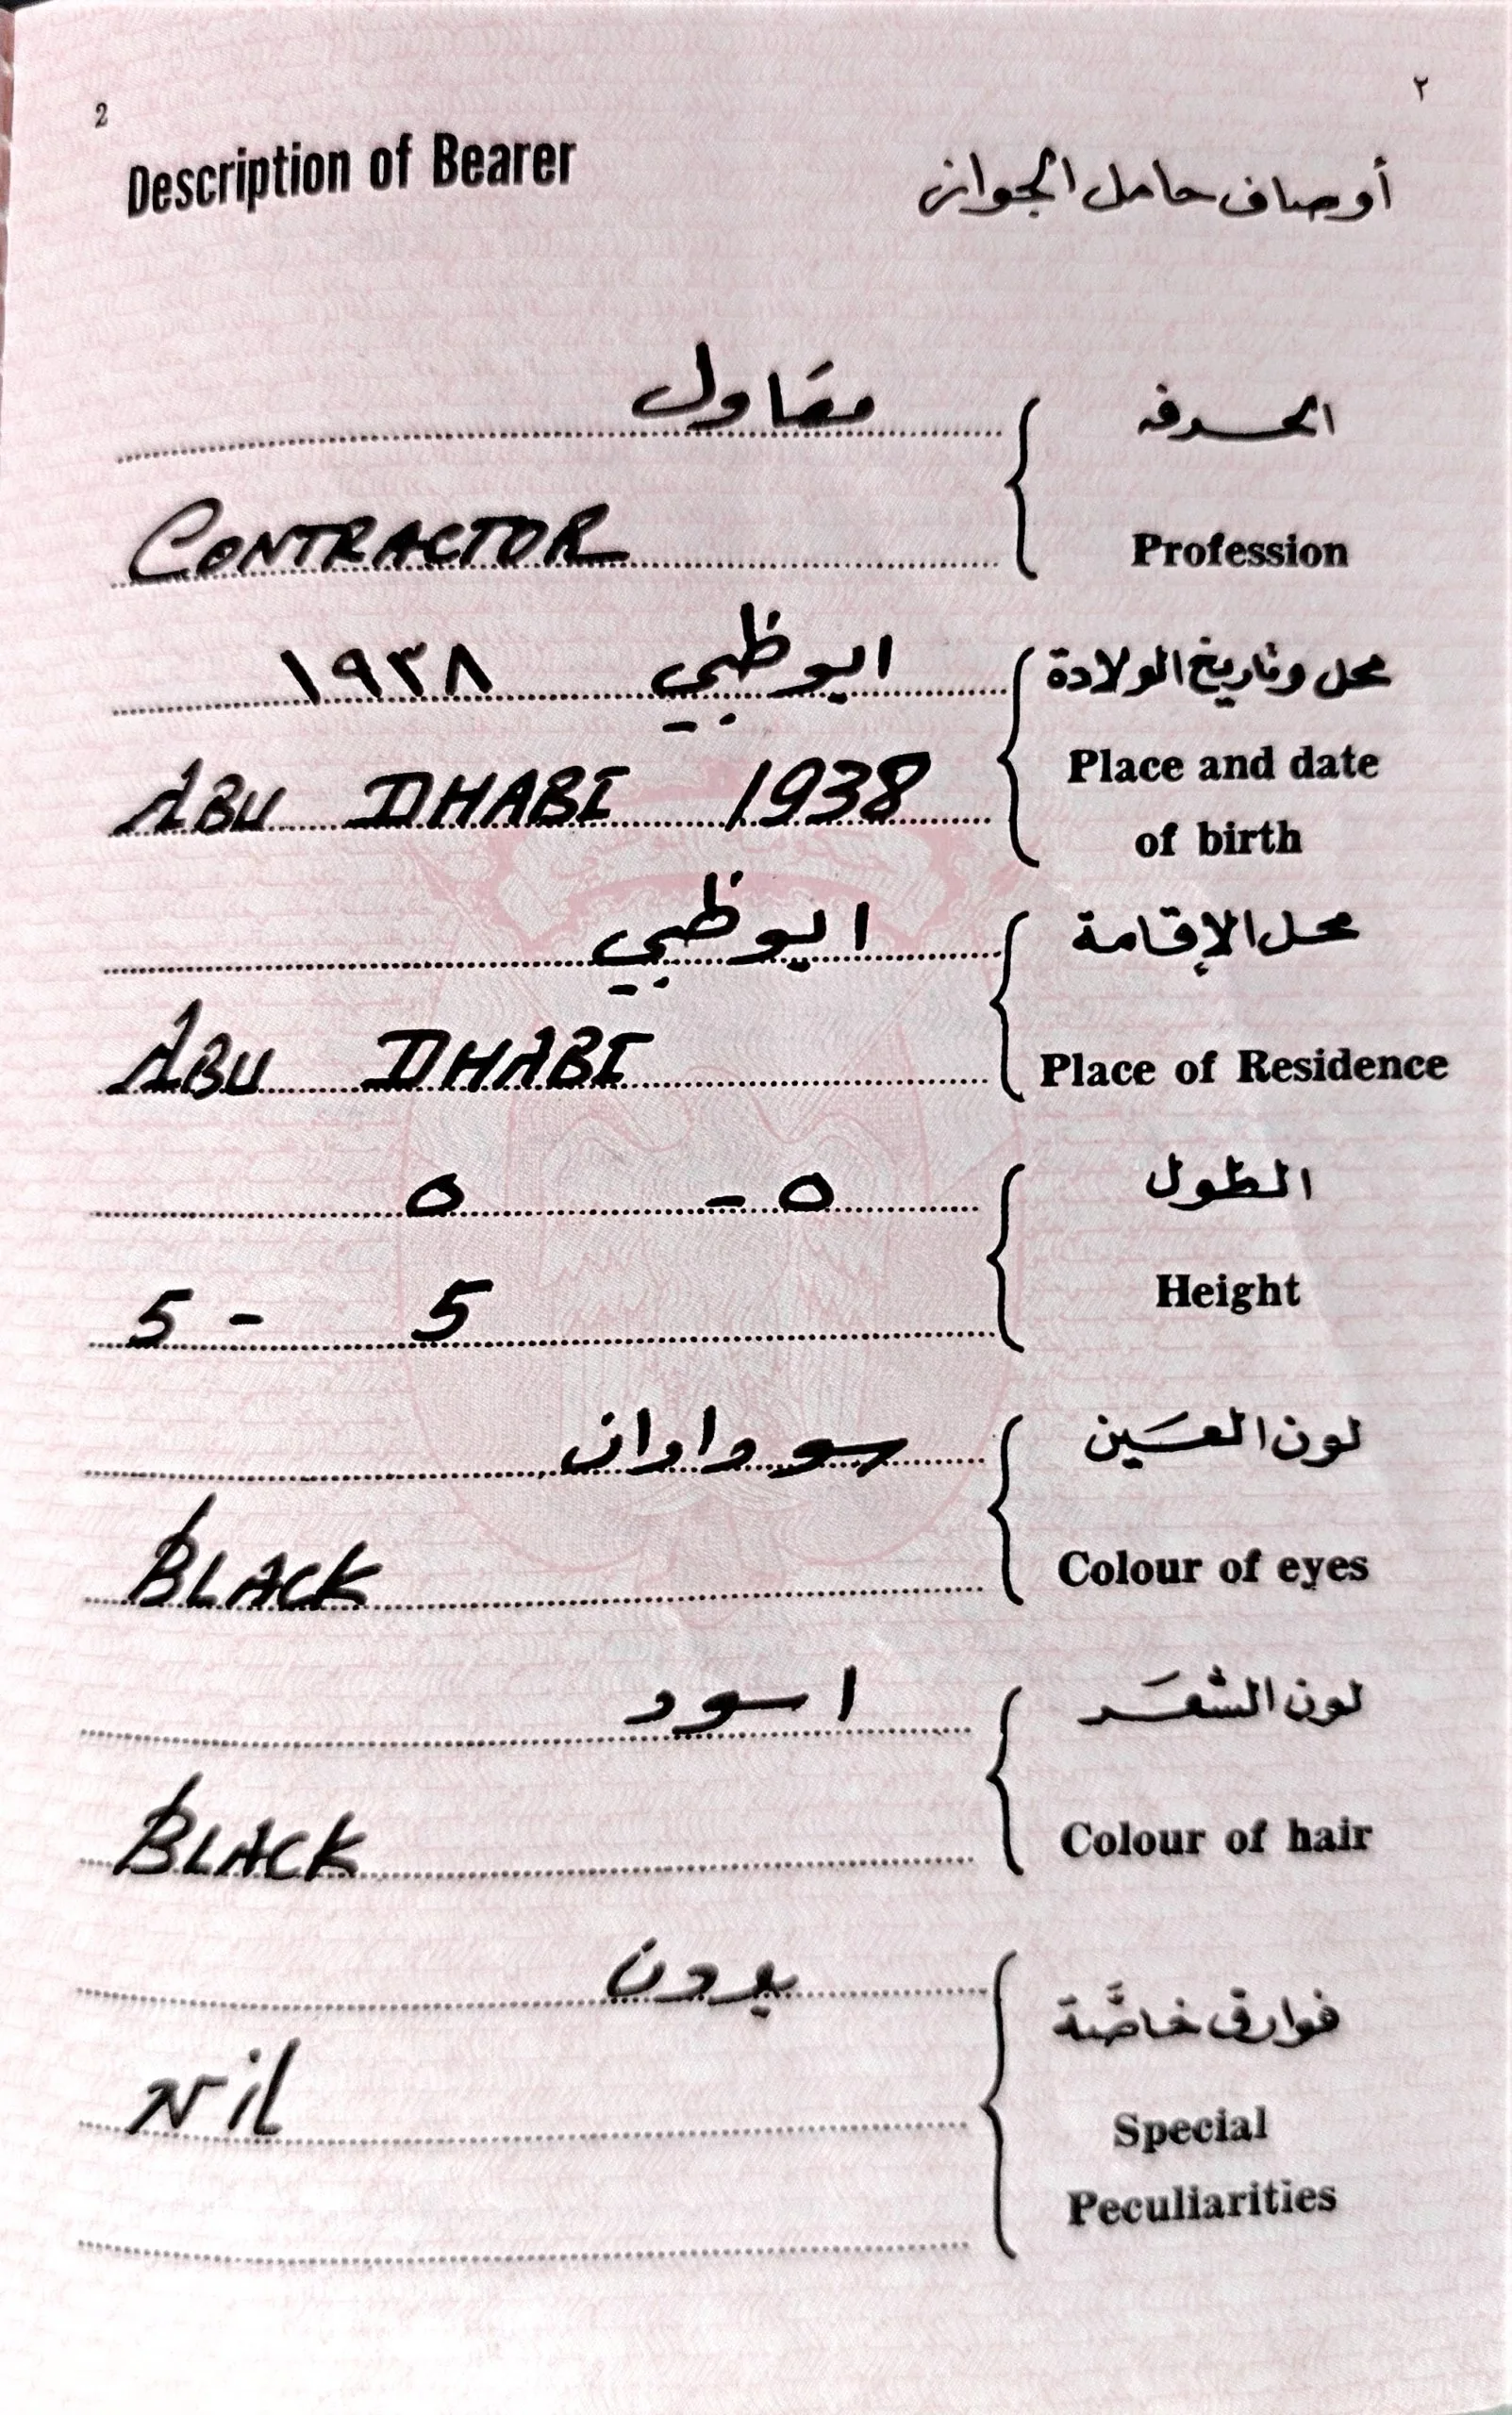 2
٢
Description of Bearer
أوصاف حامل الجواز
مقاول
الحرفه
CONTRACTOR
Profession
ابوظبي ١٩٣٨
محل وتاريخ الولادة
ABU DHABI 1938
Place and date
of birth
ابوظبي
محل الإقامة
ABU DHABI
Place of Residence
٥ - ٥
الطول
5 - 5
Height
سوداوان
لون العَين
BLACK
Colour of eyes
اسود
لون الشعَر
BLACK
Colour of hair
بدون
فوارق خاصَّة
Nil
Special
Peculiarities